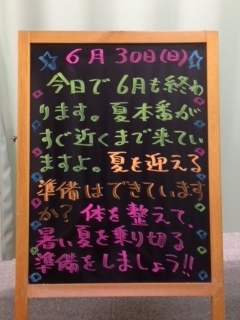 6月30日(日)
今日で6月も終わ
ります。夏本番が
すぐ近くまで来てい
ますよ。夏を迎える
準備はできています
か？体を整えて、
暑い夏を乗り切る
準備をしましょう!!